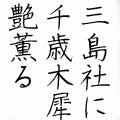 三島社に
千歳木犀
艶薫る